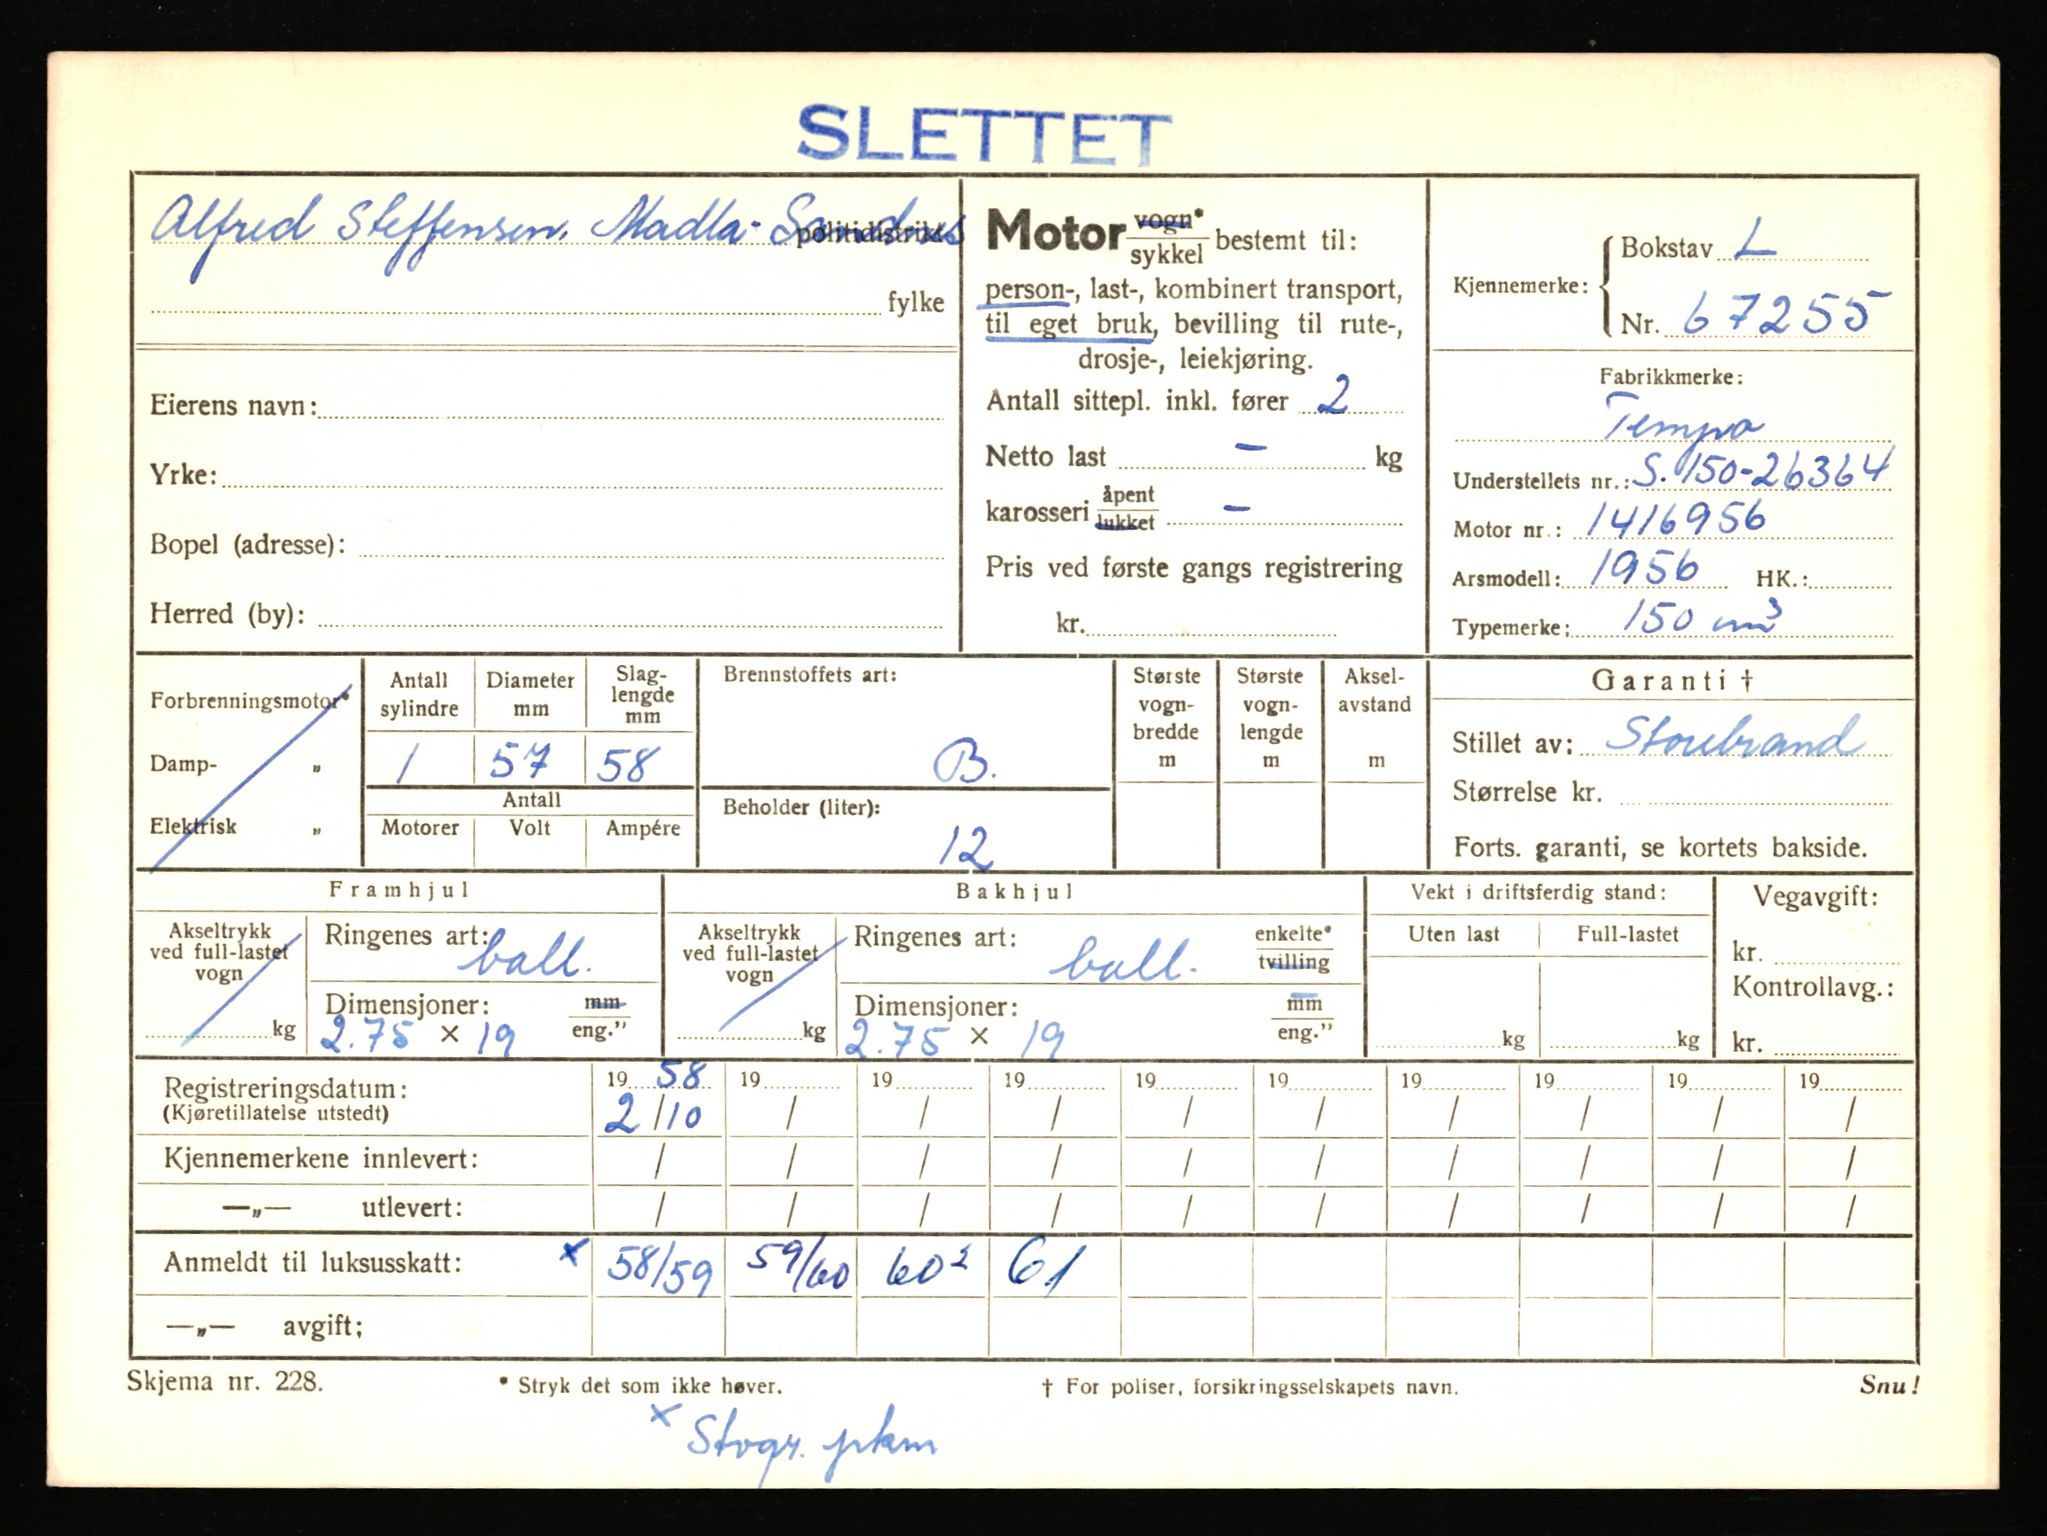 SLETTET
Alfred Steffensen. Madla-Sandnes politidistrikt
fylke
Eierens navn:
Yrke:
Bopel (adresse):
Herred (by):
Motor vogn* sykkel bestemt til:
person-, last-, kombinert transport,
til eget bruk, bevilling til rute-,
drosje-, leiekjøring.
Antall sittepl. inkl. fører 2
Netto last – kg
karosseri åpent lukket –
Pris ved første gangs registrering
kr.
Kjennemerke: Bokstav L
Nr. 67255
Fabrikkmerke:
Tempo
Understellets nr.: S. 150-26364
Motor nr.: 1416956
Arsmodell: 1956 HK.:
Typemerke: 150 cm³
Forbrenningsmotor*
Damp- „
Elektrisk „
Antall sylindre
1
Diameter mm
57
Slag-lengde mm
58
Antall
Motorer Volt Ampére
Brennstoffets art:
B.
Beholder (liter):
12
Største vogn-bredde m
Største vogn-lengde m
Aksel-avstand m
Garanti †
Stillet av: Storebrand
Størrelse kr.
Forts. garanti, se kortets bakside.
Framhjul
Akseltrykk ved full-lastet vogn
kg
Ringenes art: ball.
Dimensjoner: mm eng."
2.75 × 19
Bakhjul
Akseltrykk ved full-lastet vogn
kg
Ringenes art: ball. enkelte* tvilling
Dimensjoner: mm eng."
2.75 × 19
Vekt i driftsferdig stand:
Uten last Full-lastet
kg kg
Vegavgift:
kr.
Kontrollavg.:
kr.
Registreringsdatum: 19 58 19 19 19 19 19 19 19 19 19
(Kjøretillatelse utstedt) 2/10 / / / / / / / / /
Kjennemerkene innlevert: / / / / / / / / / /
—„— utlevert: / / / / / / / / / /
Anmeldt til luksusskatt: x 58/59 59/60 60² 61
—„— avgift;
Skjema nr. 228. * Stryk det som ikke høver. † For poliser, forsikringsselskapets navn. Snu!
x Stvgr. pkm